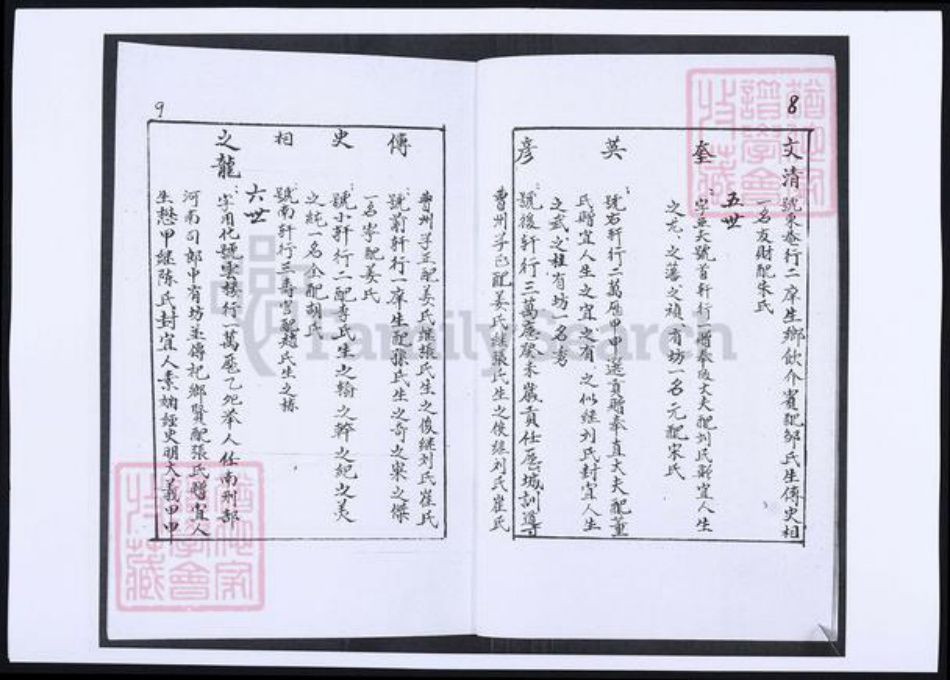 8
文清 號東菴行二庠生鄉飲介賓配邹氏生傳史相
一名友財配朱氏
五世
奎 字豆天號首軒行一贈奉政大夫配刘氏贈宜人生
之光之藩之禎有坊一名元配宋氏
英 號右軒行二萬历甲申選貢贈奉直大夫配董
氏贈宜人生之宜之有之似继刘氏封宜人生
之武之柱有坊一名秀
彦 號後軒行三萬历癸未歲貢任历城訓導
曹州学正配姜氏继張氏生之俊继刘氏崔氏
9
曹州学正配姜氏继張氏生之俊继刘氏崔氏
傳 號前軒行一庠生配孫氏生之奇之宋之傑
一名字配姜氏
史 號小軒行二配李氏生之翰之幹之紀之美
之純一名全配胡氏
相 號南軒行三寿官配趙氏生之棟
六世
之龍 字用化號雲樓行一萬历乙夘举人任南刑部
河南司郎中有坊並傳祀鄉賢配張氏贈宜人
生懋甲继陈氏封宜人素嫻經史明大義甲申
FamilySearch